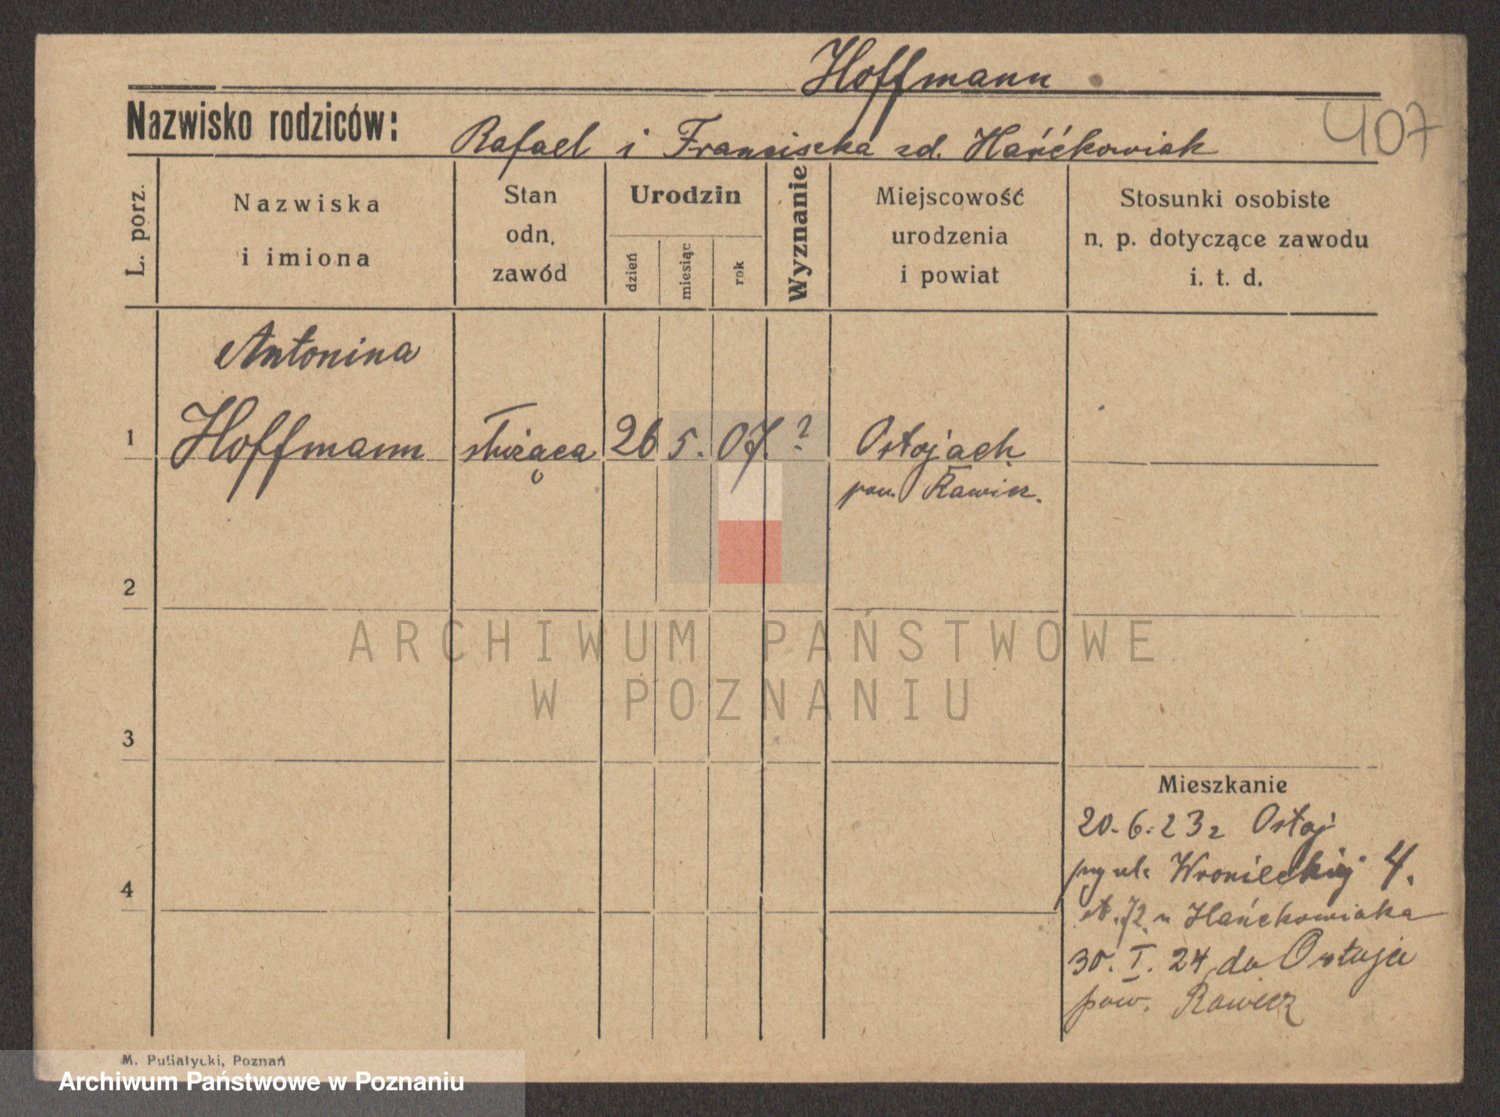 Hoffmann
407
Nazwisko rodziców: Rafael i Franciszka zd. Hańćkowiak
L. porz.
Nazwiska
i imiona
Stan
odn.
zawód
Urodzin
dzień
miesiąc
rok
Wyznanie
Miejscowość
urodzenia
i powiat
Stosunki osobiste
n. p. dotyczące zawodu
i. t. d.
Antonina
1 Hoffmann służąca 26 5. 07. ? Ostojach
pow. Rawicz.
2
ARCHIWUM PAŃSTWOWE
W POZNANIU
3
Mieszkanie
20.6.23 z Ostoj
4
Wronieckiej 4.
72 u Hańckowiaka
30. I. 24 do Ostoja
pow. Rawicz
M. Putiatycki, Poznań
Archiwum Państwowe w Poznaniu